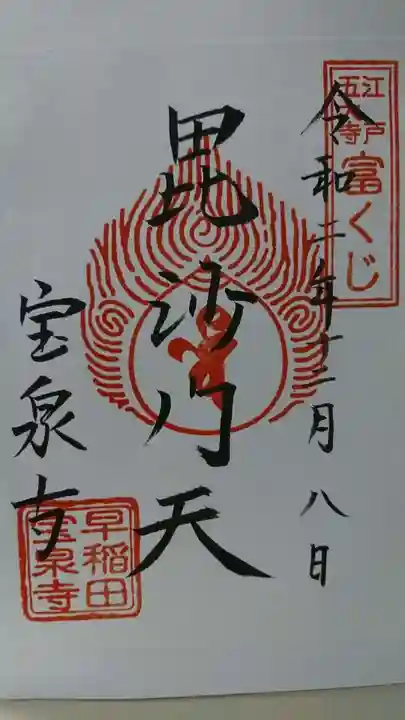 江戸
五大寺
富くじ
令和二年十二月八日
毘沙門天
宝泉寺
早稲田
宝泉寺